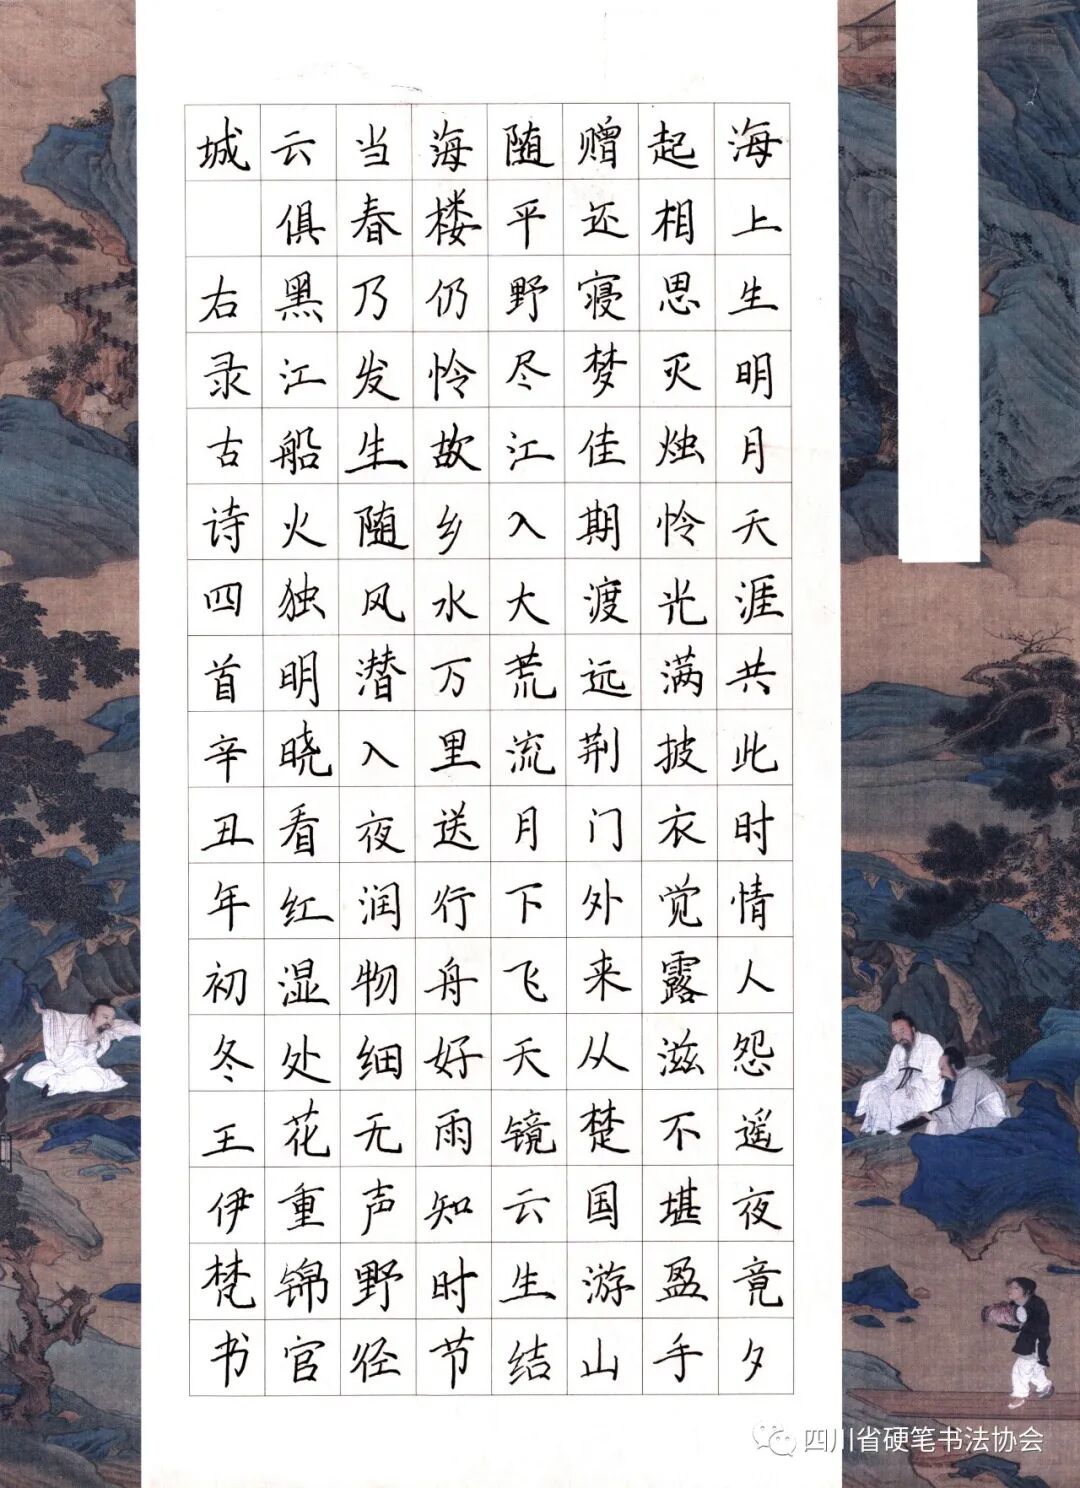 海上生明月天涯共此时情人怨遥夜竟夕
起相思灭烛怜光满披衣觉露滋不堪盈手
赠还寝梦佳期渡远荆门外来从楚国游山
随平野尽江入大荒流月下飞天镜云生结
海楼仍怜故乡水万里送行舟好雨知时节
当春乃发生随风潜入夜润物细无声野径
云俱黑江船火独明晓看红湿处花重锦官
城 右录古诗四首辛丑年初冬王伊梵书
四川省硬笔书法协会